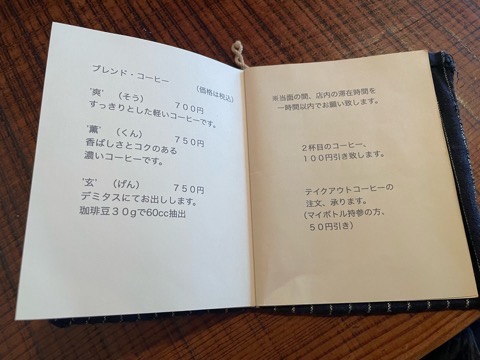 ブレンド・コーヒー
(価格は税込)
"爽" (そう) 700円
すっきりとした軽いコーヒーです。
"薫" (くん) 750円
香ばしさとコクのある
濃いコーヒーです。
"玄" (げん) 750円
デミタスにてお出しします。
珈琲豆30gで60cc抽出
※当面の間、店内の滞在時間を
一時間以内でお願い致します。
2杯目のコーヒー、
100円引き致します。
テイクアウトコーヒーの
注文、承ります。
(マイボトル持参の方、
50円引き)